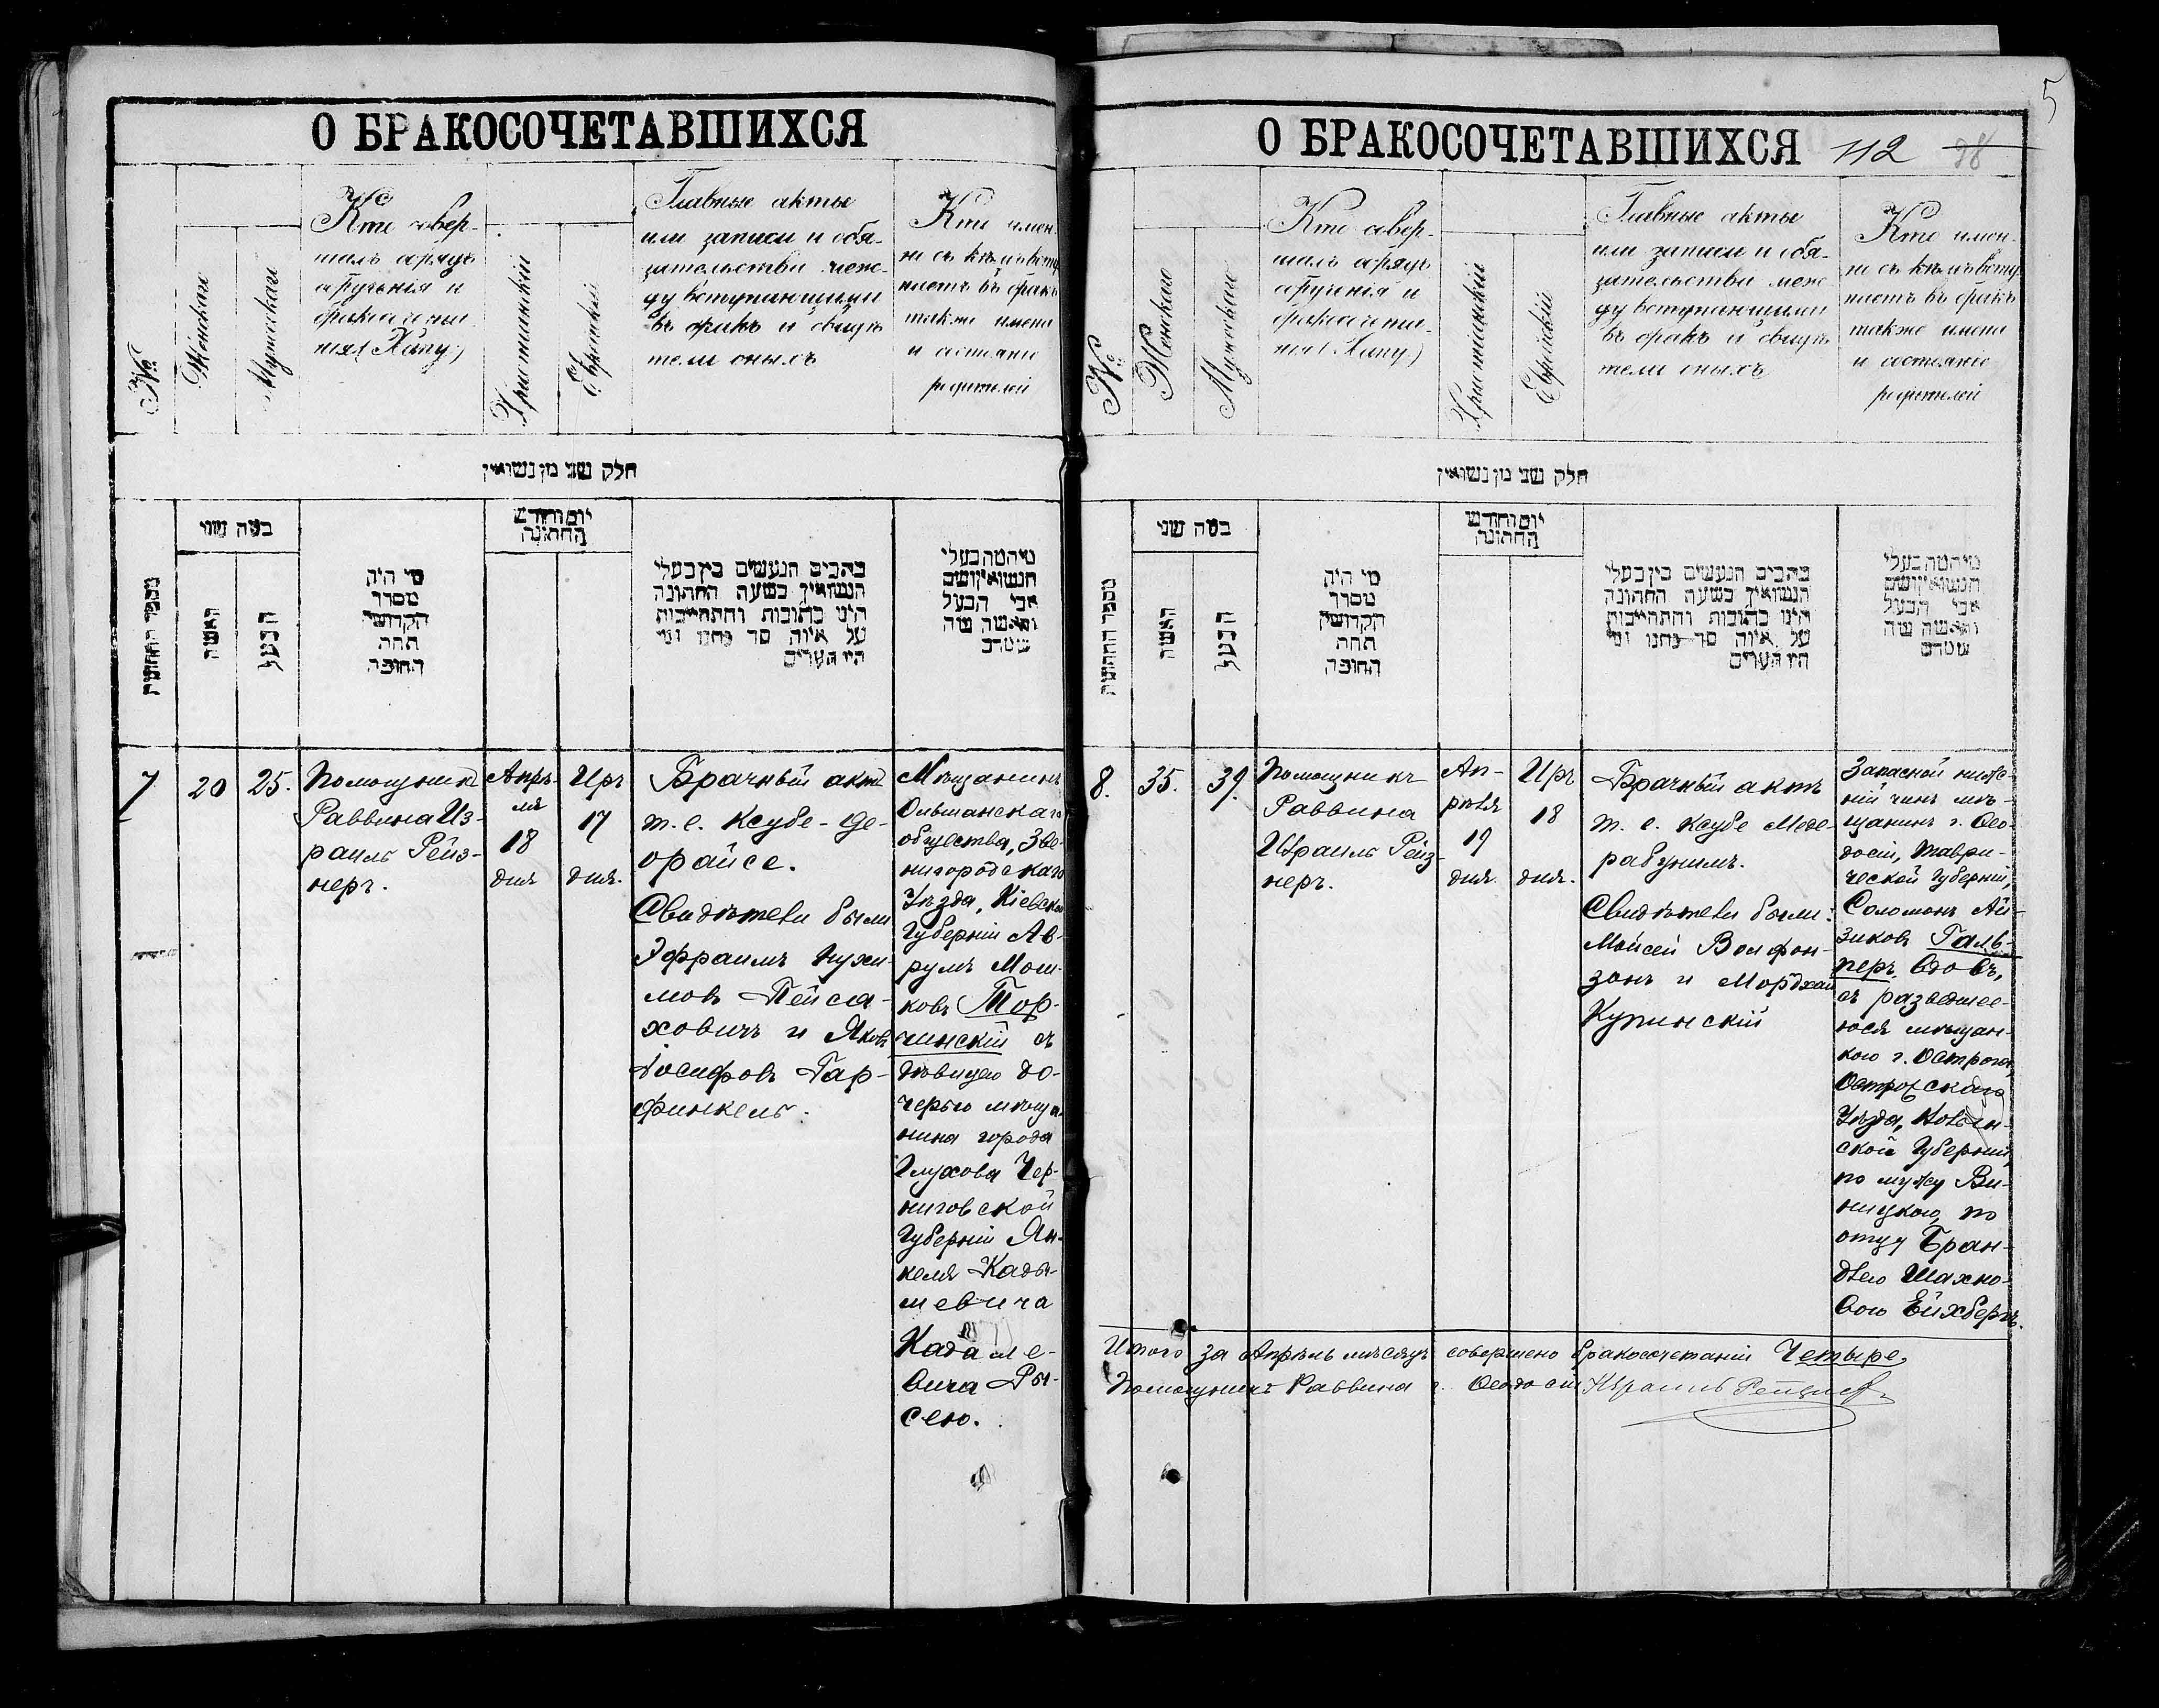 О БРАКОСОЧЕТАВШИХСЯ
№
Женскаго
Мужескаго
Кто совер-
шалъ обрядъ
обрученія и
бракосочета-
нія (Хупу)
Христіанскій
Еврейскій
Главные акты
или записи и обя-
зательства меж-
ду вступающими
въ бракъ и свидѣ
тели оныхъ
Кто имен-
но съ кѣмъ всту
паетъ въ бракъ
также имена
и состояніе
родителей
חלק שני מן נשואין
מספר החתונות
בשנה שני
האשה
הבעל
מי היה
מסדר
הקדושין
תחת
החופה
יום וחודש
החתונה
כתבים הנעשים בין בעלי
הנשואין בשעה החתונה
היינו כתובות והתחייבות
על איזה סך
היו העדים
הנשואין ושם
אבי הבעל
7
20
25.
Помощникъ
Раввина Из-
раиль Рейз-
неръ.
Апрѣ-
ля
18
дня
Иръ
17
дня.
Брачный актъ
т. е. Ксубе-де-
орайсе.
Свидѣтели были
Эфраимъ Нухи-
мовъ Пейса-
ховичъ и Яковъ
Іосифовъ Гар-
финкель.
Мѣщанинъ
Ольшанскаго
общества, Зве-
нигородскаго
Уѣзда, Кіевской
Губерніи Ав-
румъ Мош-
ковъ Тор-
чинскій съ
дѣвицею до-
черью мѣща-
нина города
Глухова Чер-
ниговской
Губерніи Ян-
келя Кады-
шевича
Ры-
сею.
О БРАКОСОЧЕТАВШИХСЯ 112 98
5
№
Женскаго
Мужескаго
Кто совер-
шалъ обрядъ
обрученія и
бракосочета-
нія (Хупу)
Христіанскій
Еврейскій
Главные акты
или записи и обя-
зательства меж
ду вступающими
въ бракъ и свидѣ
тели оныхъ
Кто имен-
но съ кѣмъ всту
паетъ въ бракъ
также имена
и состояніе
родителей
חלק שני מן נשואין
מספר החתונות
בשנה שני
האשה
הבעל
מי היה
מסדר
הקדושין
תחת
החופה
יום וחודש
החתונה
כתבים הנעשים בין בעלי
הנשואין בשעה החתונה
היינו כתובות והתחייבות
על איזה סך
היו העדים
הנשואין ושם
אבי הבעל
8.
35.
39.
Помощникъ
Раввина
Израиль Рейз-
неръ.
Ап-
рѣля
19
дня.
Иръ
18
дня.
Брачный актъ
т. е. Ксубе меде-
рабунимъ.
Свидѣтели были:
Мойсей Вольфен-
зонъ и Мордхай
Купинскій
Запасной ниж-
ній чинъ мѣ-
щанинъ г. Ѳео-
досіи, Таври-
ческой Губерніи,
Соломонъ Ай-
зиковъ Галь-
перъ, вдовъ,
съ разведшею-
юся мѣщан-
кою г. Острога,
Острожскаго
Уѣзда, Волын-
ской Губерніи,
по мужу Ви-
ницкою, по
отцу Бран-
дlею Шахно-
вою Ейхбергъ.
Итого за Апрѣль мѣсяцъ совершено бракосочетаній Четыре.
Помощникъ Раввина г. Ѳеодосіи Израиль Рейзнеръ